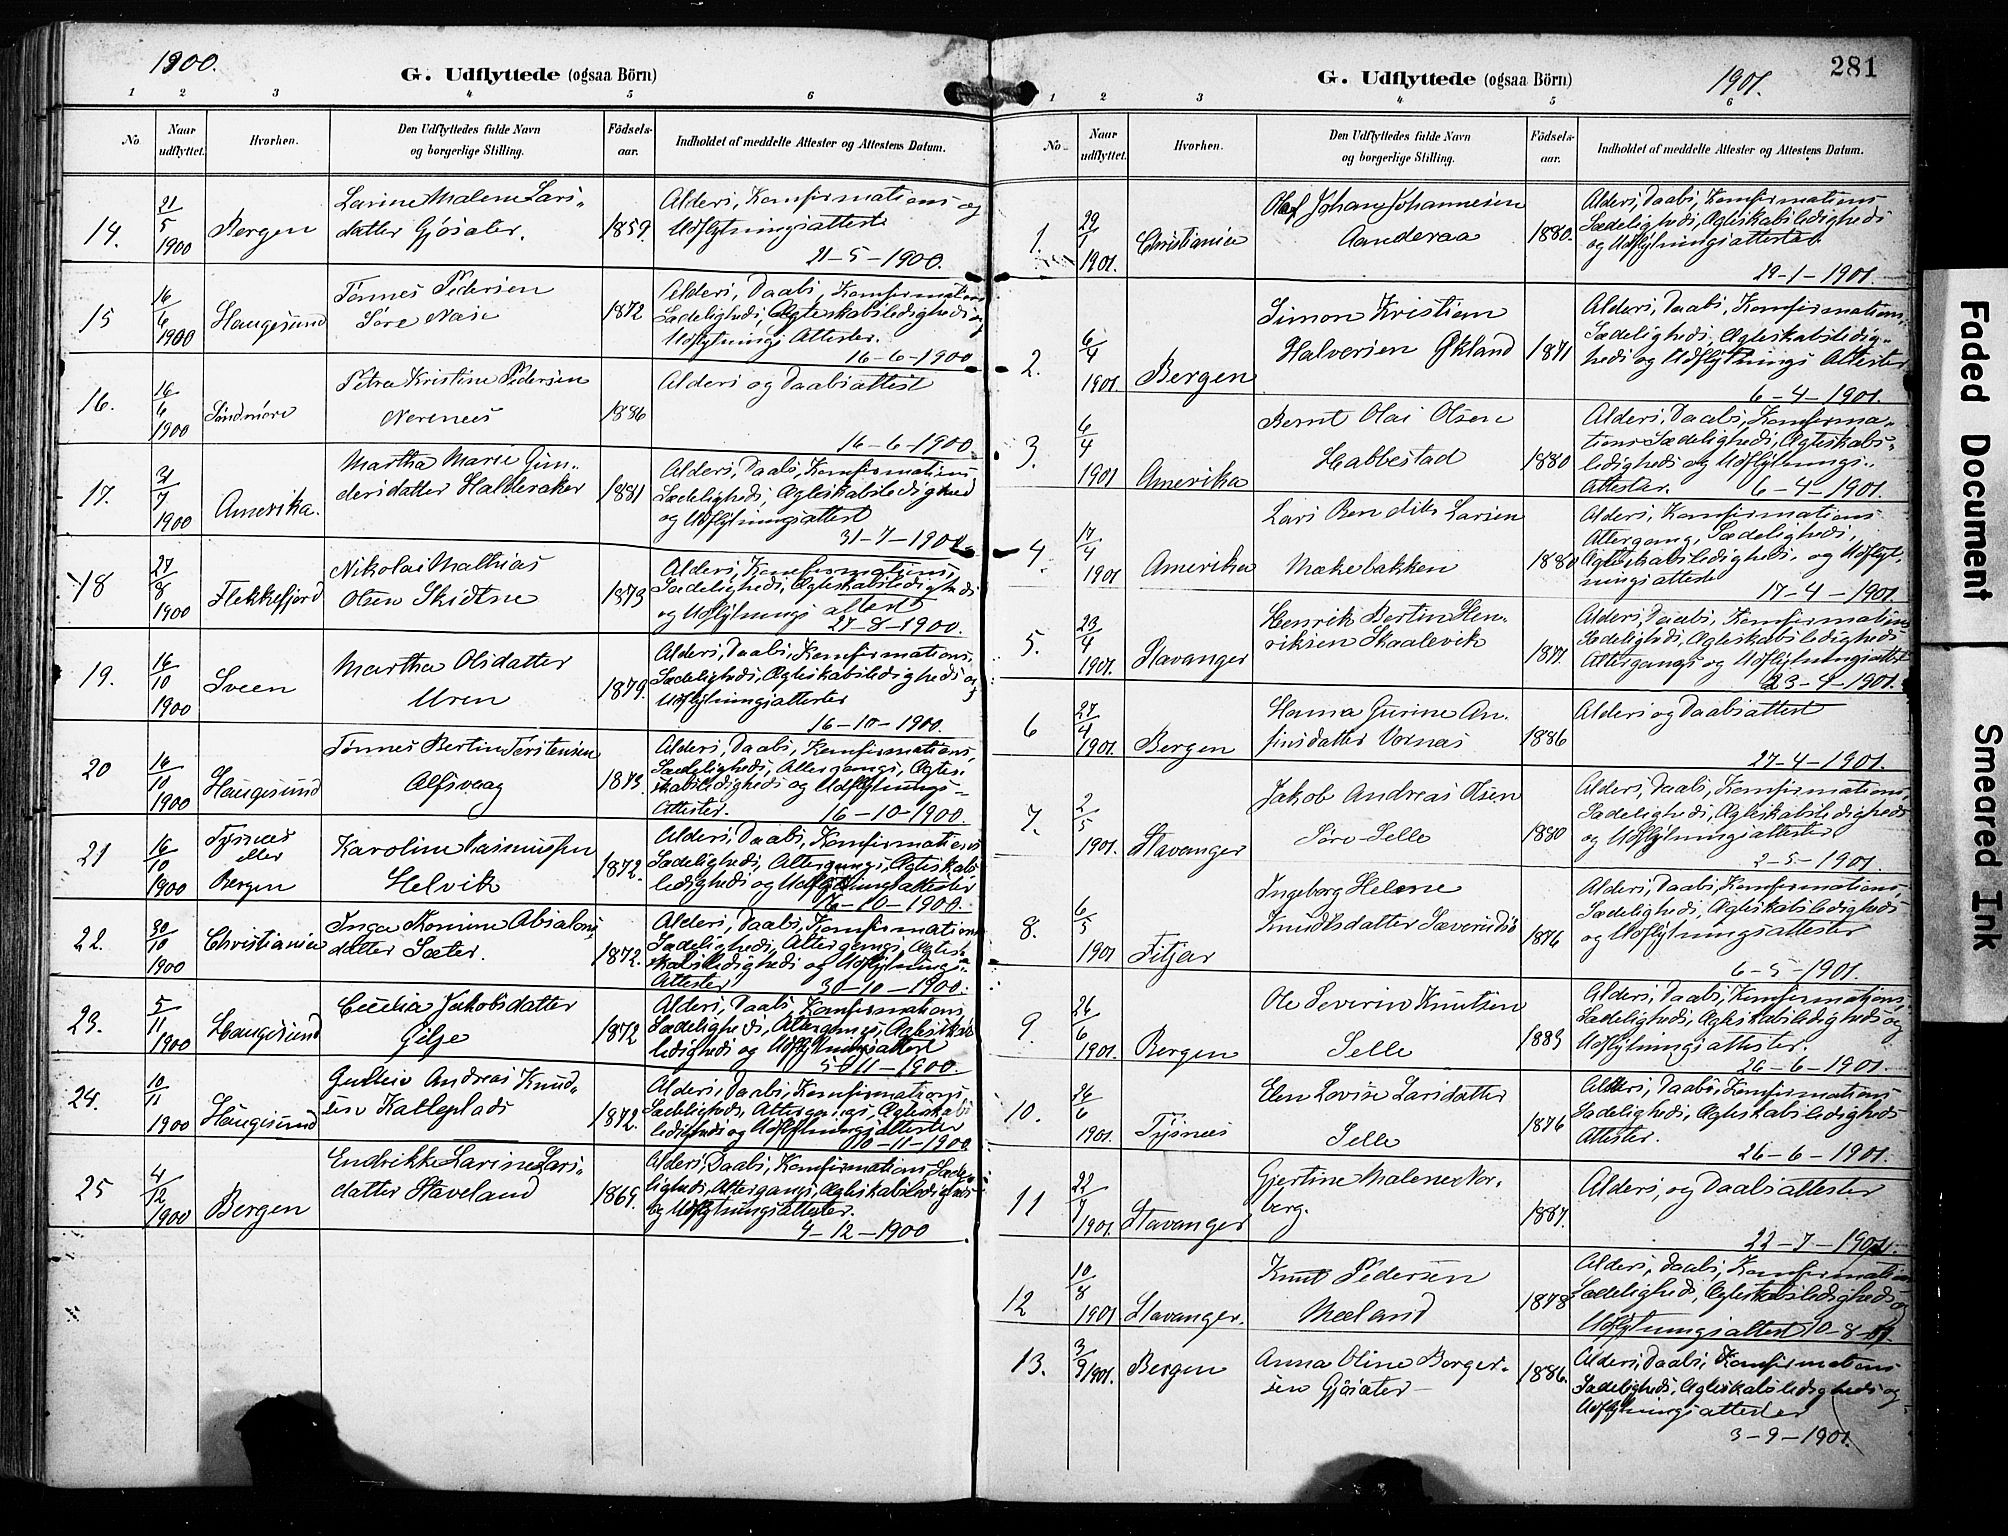 1900.
G. Udflyttede (ogsaa Börn)
1 2 3 4 5 6
No Naar udflyttet. Hvorhen. Den Udflyttedes fulde Navn og borgerlige Stilling. Födsels-aar. Indholdet af meddelte Attester og Attestens Datum.
14. 21/5 1900 Bergen Larine Malene Lars-
datter Gjøsæter. 1859. Alders, Konfirmations og
Udflytningsattest
21-5-1900.
15 16/6 1900 Haugesund Tønnes Pedersen
Søre Næse 1872 Alders, Daabs, Konfirmations
Sædeligheds, Ægteskabsledigheds og
Udflytnings Attester.
16-6-1900
16. 16/6 1900 Søndmøre Petra Kristine Pedersen
Nerenæs 1886 Alders og Daabsattest
16-6-1900
17. 31/7 1900 Amerika. Martha Marie Gun-
dersdatter Halderaker 1881 Alders, Daabs, Konfirmations
Sædeligheds, Ægteskabsledighed
og Udflytningsattest
31-7-1900.
18 27/8 1900 Flekkefjord Nikolai Mathias
Olsen 1873 Alders, Konfirmations,
Sædeligheds, Ægteskabsledigheds
og Udflytnings attest
27-8-1900.
19. 16/10 1900 Sveen Martha Olsdatter
Uren 1879. Alders, Daabs, Konfirmations,
Sædeligheds, Ægteskabsledigheds og
Udflytningsattester
16-10-1900.
20 16/10 1900 Haugesund Tønnes Bertin Torstensen
Alfsvaag 1873. Alders, Daabs, Konfirmations,
Sædeligheds, Altergangs, Ægte-
skabsledigheds og Udflytnings-
Attester. 16-10-1900.
21 16/10 1900 Tysnæs
eller
Bergen Karoline Rasmussen
Helvik 1872. Alders, Daabs, Konfirmations
Sædeligheds, Altergangs, Ægteskabs
ledigheds og Udflytningsattester
16-10-1900.
22. 30/10 1900 Christiania Inga Absalons
datter Sæter. 1872. Alders, Daabs, Konfirmations
Sædeligheds, Altergangs, Ægte-
skabsledigheds og Udflytnings-
Attester 30-10-1900.
23. 5/11 1900 Haugesund Cecilia Jakobsdatter
Gilje 1872 Alders, Daabs, Konfirmations,
Sædeligheds, Altergangs, Ægteskabs
ledigheds og Udflytningsattest
5-11-1900.
24. 10/11 1900 Haugesund Gulleiv Andreas Knud-
sen Katleplads 1872. Alders, Daabs, Konfirmations,
Sædeligheds, Altergangs, Ægteskabs
ledigheds og Udflytningsattester
10-11-1900
25 4/12 1900 Bergen Endrikke Larine Lars-
datter Staveland 1869. Alders, Daabs, Konfirmations Sæde-
ligheds, Altergangs, Ægteskabsledigheds
og Udflytningsattester.
4-12-1900
281
G. Udflyttede (ogsaa Börn) 1901.
1 2 3 4 5 6
No Naar udflyttet. Hvorhen. Den Udflyttedes fulde Navn og borgerlige Stilling. Födsels-aar. Indholdet af meddelte Attester og Attestens Datum.
1. 29/1 1901. Christiania Olaf Johan Johannesen
Aanderaa 1880. Alders, Daabs, Konfirmations
Sædeligheds, Ægteskabsledigheds
og Udflytningsattester
29-1-1901.
2. 6/4 1901. Bergen Simon Kristian
Halvorsen Økland 1871 Alders, Daabs, Konfirmations-
Sædeligheds, Ægteskabsledig-
heds og Udflytnings Attester
6-4-1901.
3. 6/4 1901 Amerika Bernt Olai Olsen
Habbestad 1880 Alders, Daabs, Konfirma-
tions Sædeligheds, Ægteskabs-
ledigheds og Udflytnings-
Attester. 6-4-1901.
4. 17/4 1901 Amerika Lars Bendik Larsen
Mækebakken 1880 Alders, Konfirmations
Altergang, Sædeligheds,
Ægteskabsledigheds, og Udflyt-
ningsattest 17-4-1901.
5. 23/4 1901. Stavanger Henrik Bertin Hen-
riksen Skaalevik 1871. Alders, Daabs, Konfirmations
Sædeligheds, Ægteskabsledigheds
Altergangs og Udflytningsattest
23-4-1901.
6 27/4 1901. Bergen Hanna Gurine An-
finsdatter Vornæs 1886 Alders og Daabsattest
27-4-1901.
7. 2/5 1901. Stavanger Jakob Andreas Olsen
Søre Selle 1880 Alders, Daabs, Konfirmations,
Sædeligheds, Ægteskabsledigheds
og Udflytningsattester
2-5-1901.
8. 6/5 1901 Fitjar Ingeborg Helene
Knudsdatter Sæverudsø 1876 Alders, Daabs, Konfirmations,
Sædeligheds, Ægteskabsledigheds
og Udflytningsattester
6-5-1901.
9. 26/6 1901. Bergen Ole Severin Knutsen
Selle 1883 Alders, Daabs, Konfirmations,
Sædeligheds, Ægteskabsledigheds og
Udflytningsattester.
26-6-1901.
10. 26/6 1901. Tysnæs Elen Lovise Larsdatter
Selle 1876 Alders, Daabs, Konfirmations
Sædeligheds, Ægteskabsledigheds
Attester.
26-6-1901.
11 22/7 1901. Stavanger Gjertine Malene Nor-
berg. 1887. Alders, og Daabsattester
22-7-1901.
12 10/8 1901 Stavanger. Knut Pedersen
Mæland 1878 Alders, Daabs, Konfirmations
Sædeligheds, Ægteskabsledigheds og
Udflytningsattest 10-8-01.
13. 3/9 1901. Bergen Anna Oline Borger-
sen Gjøsæter 1886. Alders, Daabs, Konfirmations
Sædeligheds, Ægteskabsledigheds og
Udflytningsattester
3-9-1901.
Faded Document
Smeared Ink